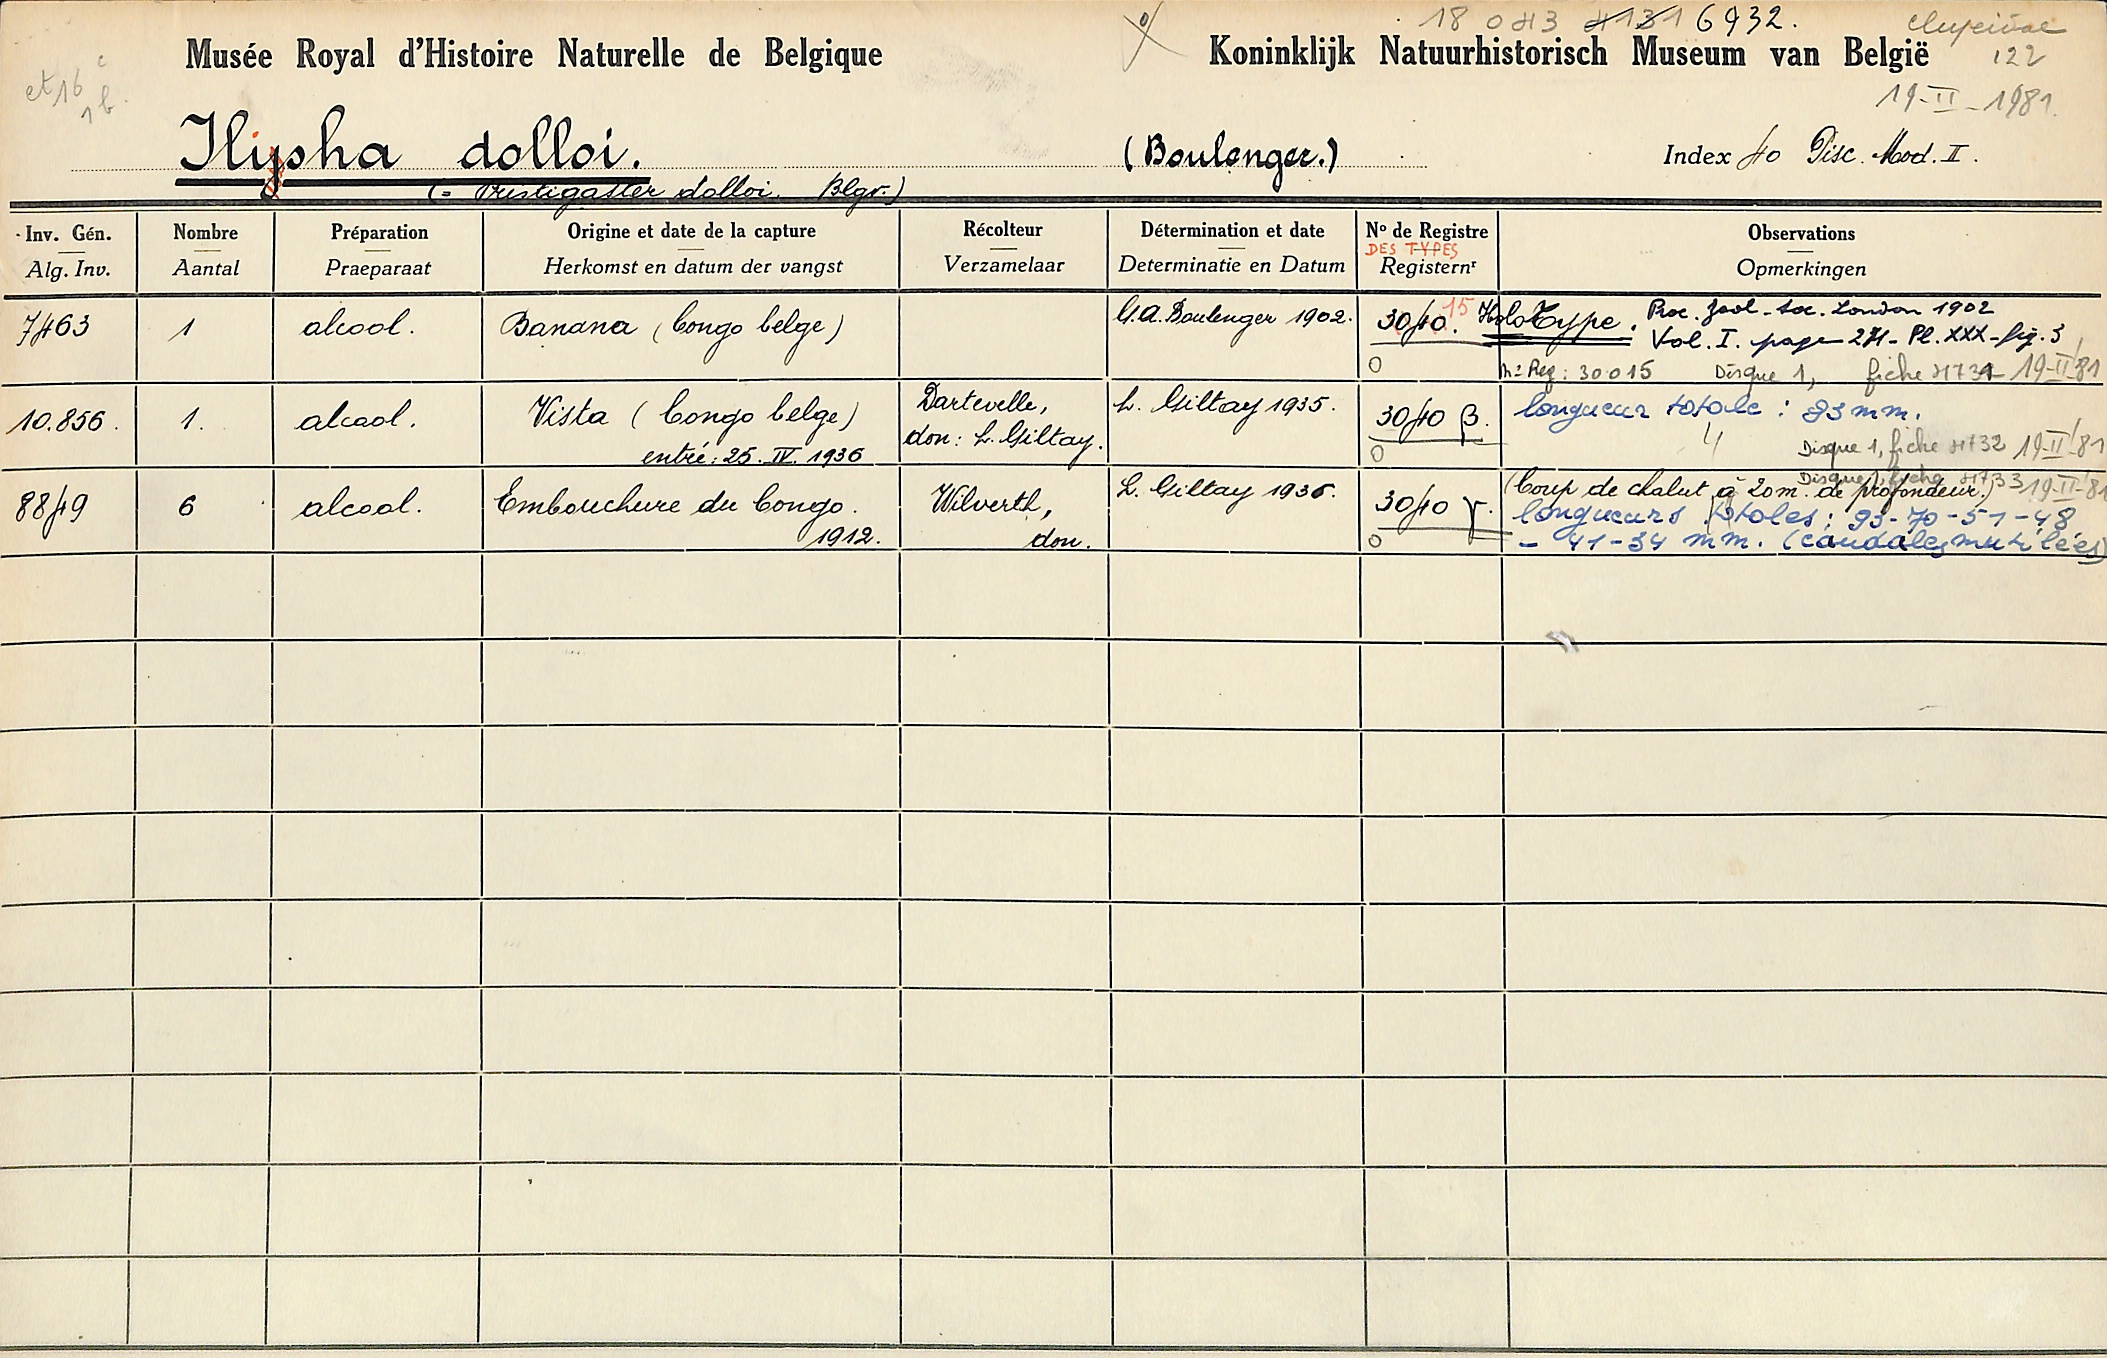 18 043 4131 6932.
Musée Royal d'Histoire Naturelle de Belgique
Koninklijk Natuurhistorisch Museum van België
122
et 16 c
1 b.
19-II-1981.
Ilisha dolloi.
(Boulenger.)
Index 40 Pisc. Mod. II.
(= Pristigaster dolloi. Blgr.)
Inv. Gén.
Alg. Inv.
Nombre
Aantal
Préparation
Praeparaat
Origine et date de la capture
Herkomst en datum der vangst
Récolteur
Verzamelaar
Détermination et date
Determinatie en Datum
No de Registre
DES TYPES
Registernr
Observations
Opmerkingen
7463
1
alcool.
Banana (Congo belge)
G.A. Boulenger 1902.
3040. 15
0
HoloType. Proc. Zool. Soc. London 1902
Vol. I. page 271 - Pl. XXX - fig. 3
no Reg: 30015 Disque 1, fiche 4731 19-II-81
10.856.
1.
alcool.
Vista (Congo belge)
entré: 25. IV. 1936
Dartevelle,
don: L. Giltay.
L. Giltay 1935.
3040 β.
0
longueur totale: 93 mm.
Disque 1, fiche 4732 19-II-81
8849
6
alcool.
Embouchure du Congo.
1912.
Wilverth,
don.
L. Giltay 1936.
3040 γ.
0
Disque 1, fiche 4733 19-II-81
(Coup de chalut à 20m. de profondeur.)
longueurs totales: 93-70-51-48
- 41-34 mm. (caudales mutilées)